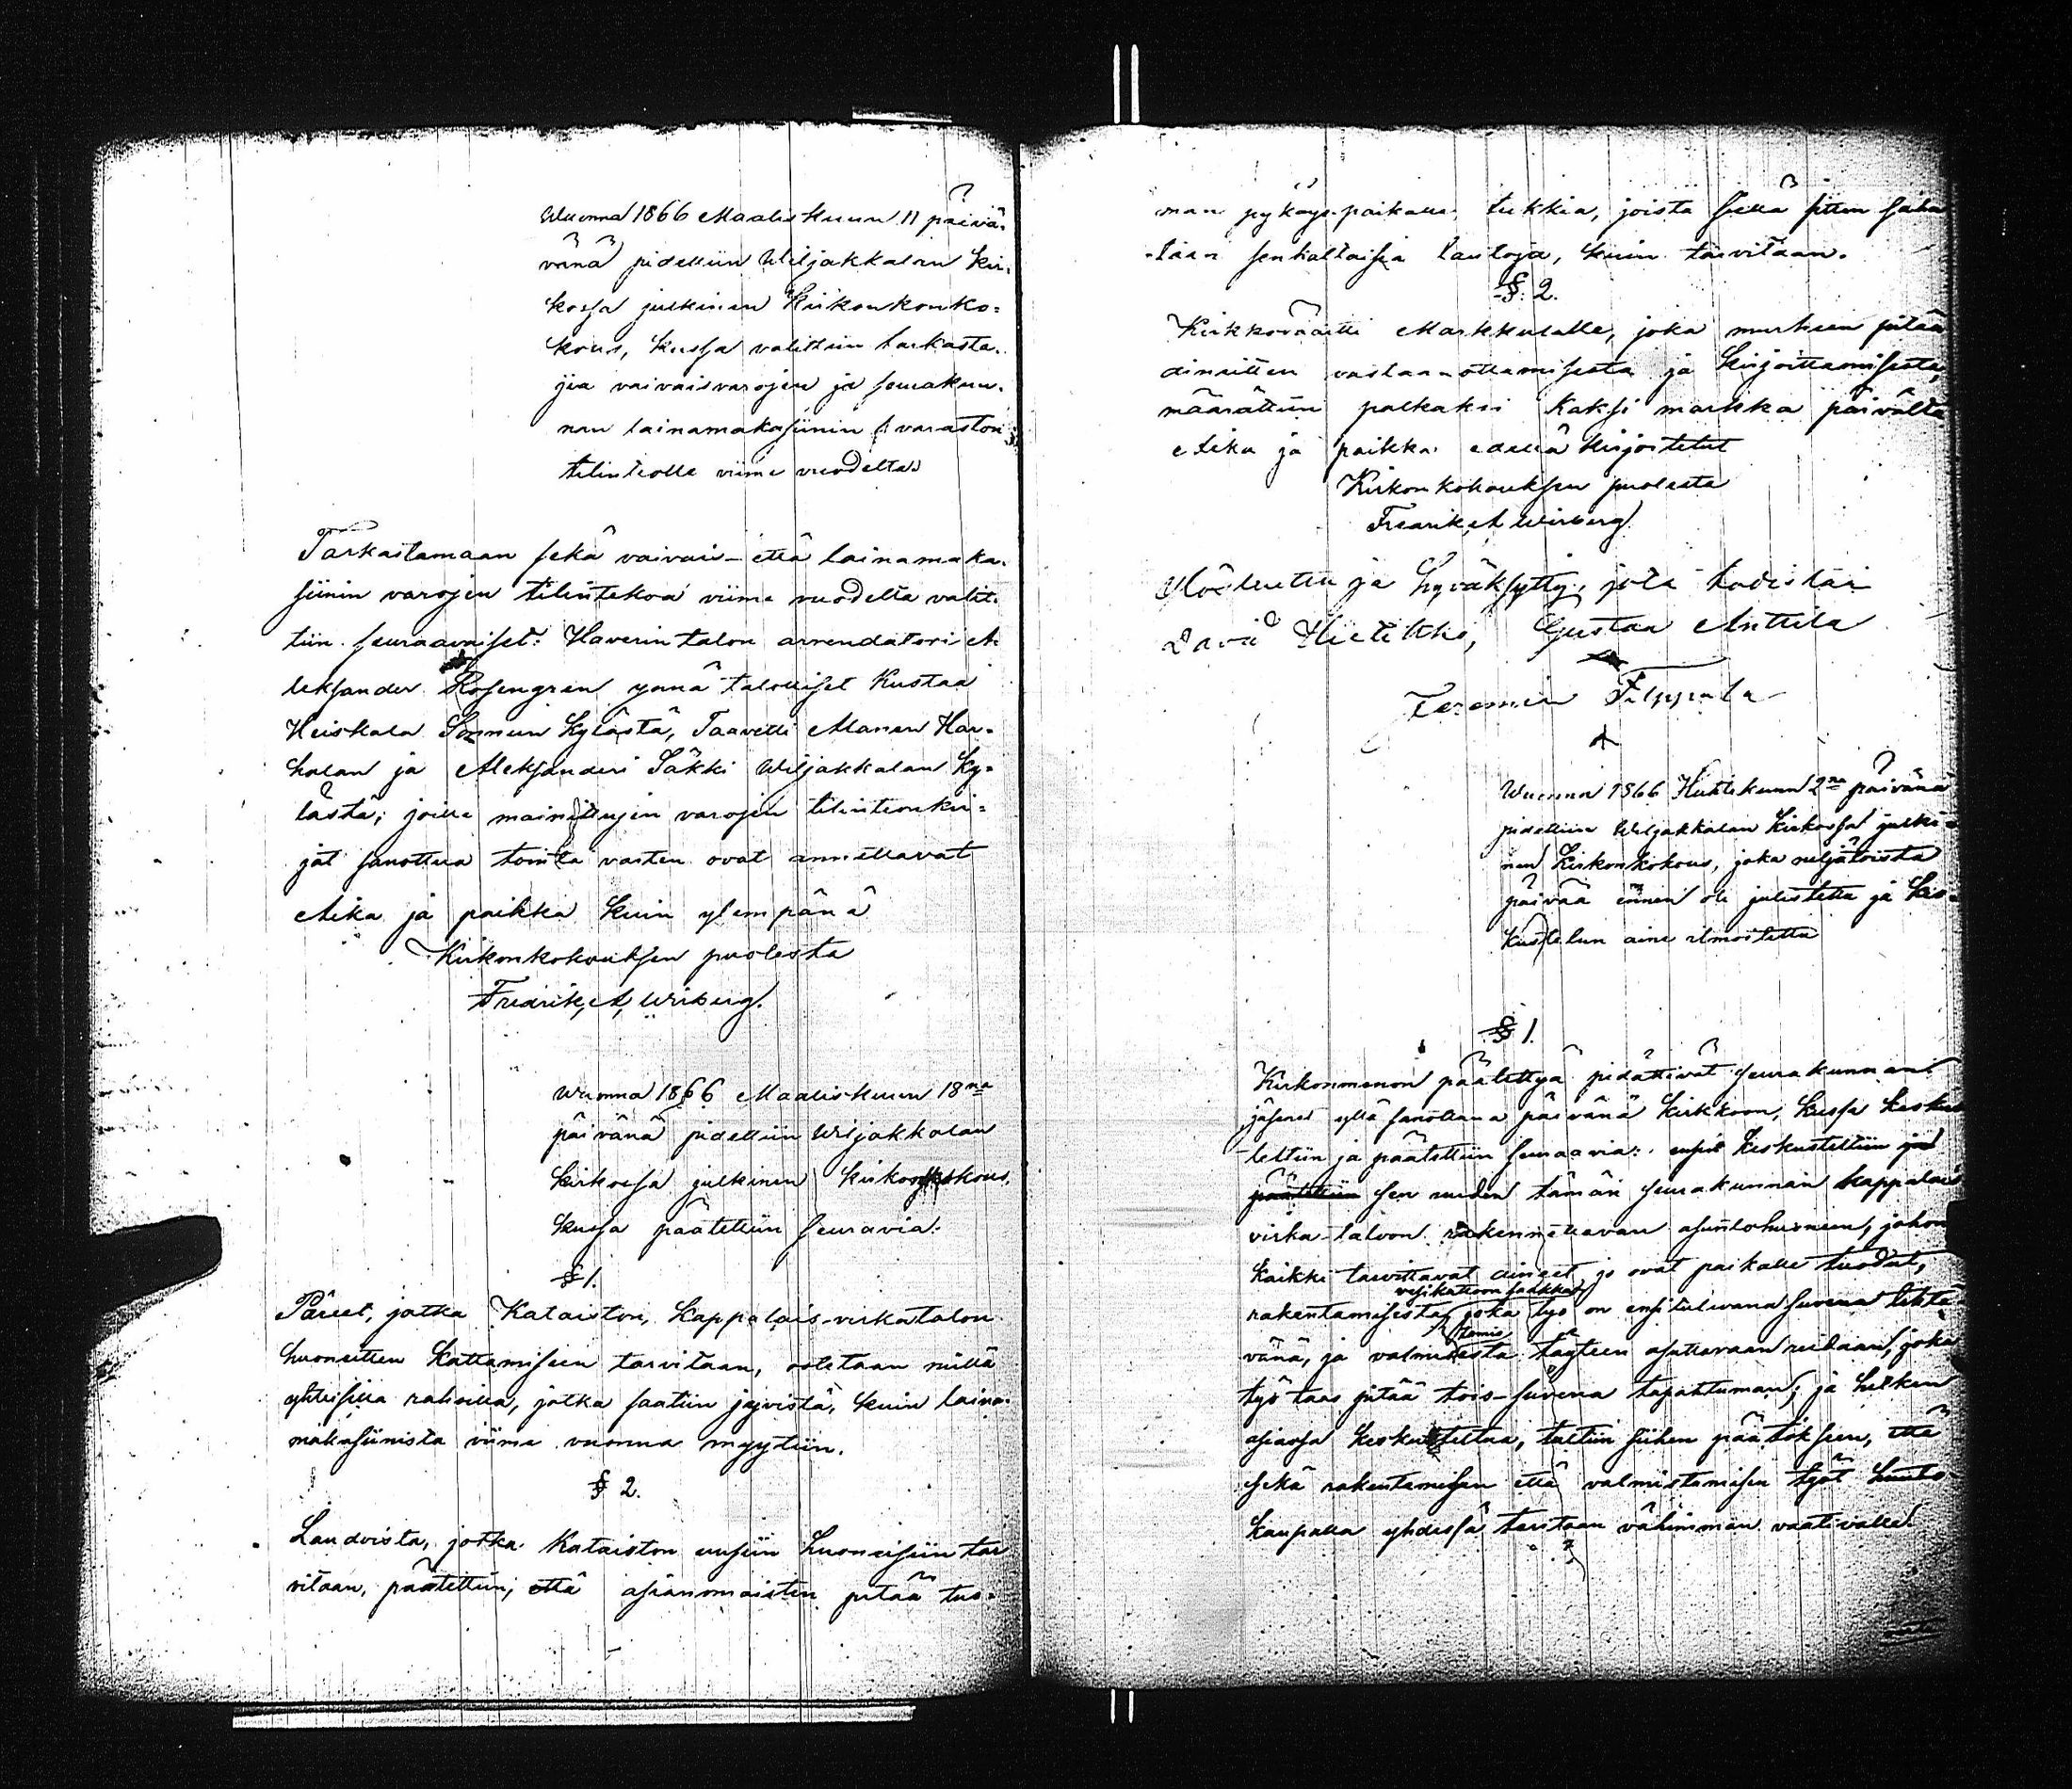 Wuonna 1866 Maaliskuun 11 päivä-
vänä pidettiin Wiljakkalan Kir-
kossa julkinen Kirkonkonko-
kous, kussa valittiin tarkasta-
jia vaivaisvarojen ja seurakun-
nan lainamakasiinin varaston
tilinteolle viime vuodelta
Tarkastamaan sekä vaivais- että lainamaka-
siinin varojen tilintekoa viime vuodelta valit-
tiin seuraavaiset: Haverin talon arrendatori A-
leksander Rosengren ynnä talolliset Kustaa
Heiskala Kylästä, Taavetti Manen Har-
halan ja Aleksanderi Säkki Wiljakkalan Ky-
lästä, joille mainittujen varojen tilinteonki-
jät sanottua tointa varten ovat annettavat
Aika ja paikka kuin ylempänä
Kirkonkokouksen puolesta
Fredrik A Wiberg.
Wuonna 1866 Maaliskuun 18na
päivänä pidettiin Wiljakkalan
Kirkossa julkinen Kirkonkokous,
kussa päätettiin seuravia:
§ 1.
Päreet, jotka Kataiston Kappalais-virkatalon
huoneitten Kattamiseen tarvitaan, ostetaan niillä
yhteisillä rahoilla, jotka saatiin jyvistä, kuin laina-
makasiinista viime vuonna myytiin.
§ 2.
Laudoista, jotka Kataiston uusiin huoneisiin tar
vitaan, päätettiin, että asianomaisten pitää tuo-
man paikalle tukkia, joista siellä sitten saha-
taan senkaltaisia lautoja, kuin tarvitaan.
§. 2.
Kirkkoväärti Markkulalle, joka murheen pitää
ainetten vastaanottamisesta ja Kirjoittamisesta,
määrättiin palkaksi Kaksi markka päivältä
Aika ja paikka edellä Kirjoitetut
Kirkonkokouksen puolesta
Fredrik A Wiberg.
Ylösluettu ja hyväksytty, jota todistaa
David Gustaa Anttila
Jeremia Filppula
Wuonna 1866 Huhtikuun 2na päivänä
pidettiin Wiljakkalan Kirkossa julki-
nen Kirkonkokous, joka neljätoista
päivää ennen oli julistettu ja Kes-
kustelun aine ilmoitettu
§ 1.
Kirkonmenon päätettyä pidättivät seurakunnan
jäsenet yllä sanottuna päivänä Kirkkoon, kussa kesku
teltiin ja päätettiin seuraavia: ensin Keskusteltiin ja
päätettiin sen uuden tämän seurakunnan kappalais
virka-taloon rakennettavan asuntohuoneen, johon
Kaikki tarvittavat aineet jo ovat paikalle tuodut,
vesikattoon saakka
rakentamisesta, joka työ on ensitulevana suvena tehtä
tamis
vänä, ja valmistesta täyteen asuttavaan reilaan, joka
työ taas pitää tois-suvena tapahtuman; ja
asiassa Keskusteltua, tultiin siihen päätökseen, että
sekä rakentamisen että valmistamisen työt huuto
kaupalla yhdessä taritaan vähimmän vaativalle